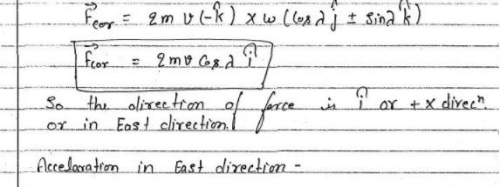 F⃗cor = 2m v (-k̂) × ω (Cos λ ĵ ± Sin λ k̂)
F⃗cor = 2 m v Cos λ î
So the direction of force is î or + x direcⁿ.
or in East direction.
Acceleration in East direction -